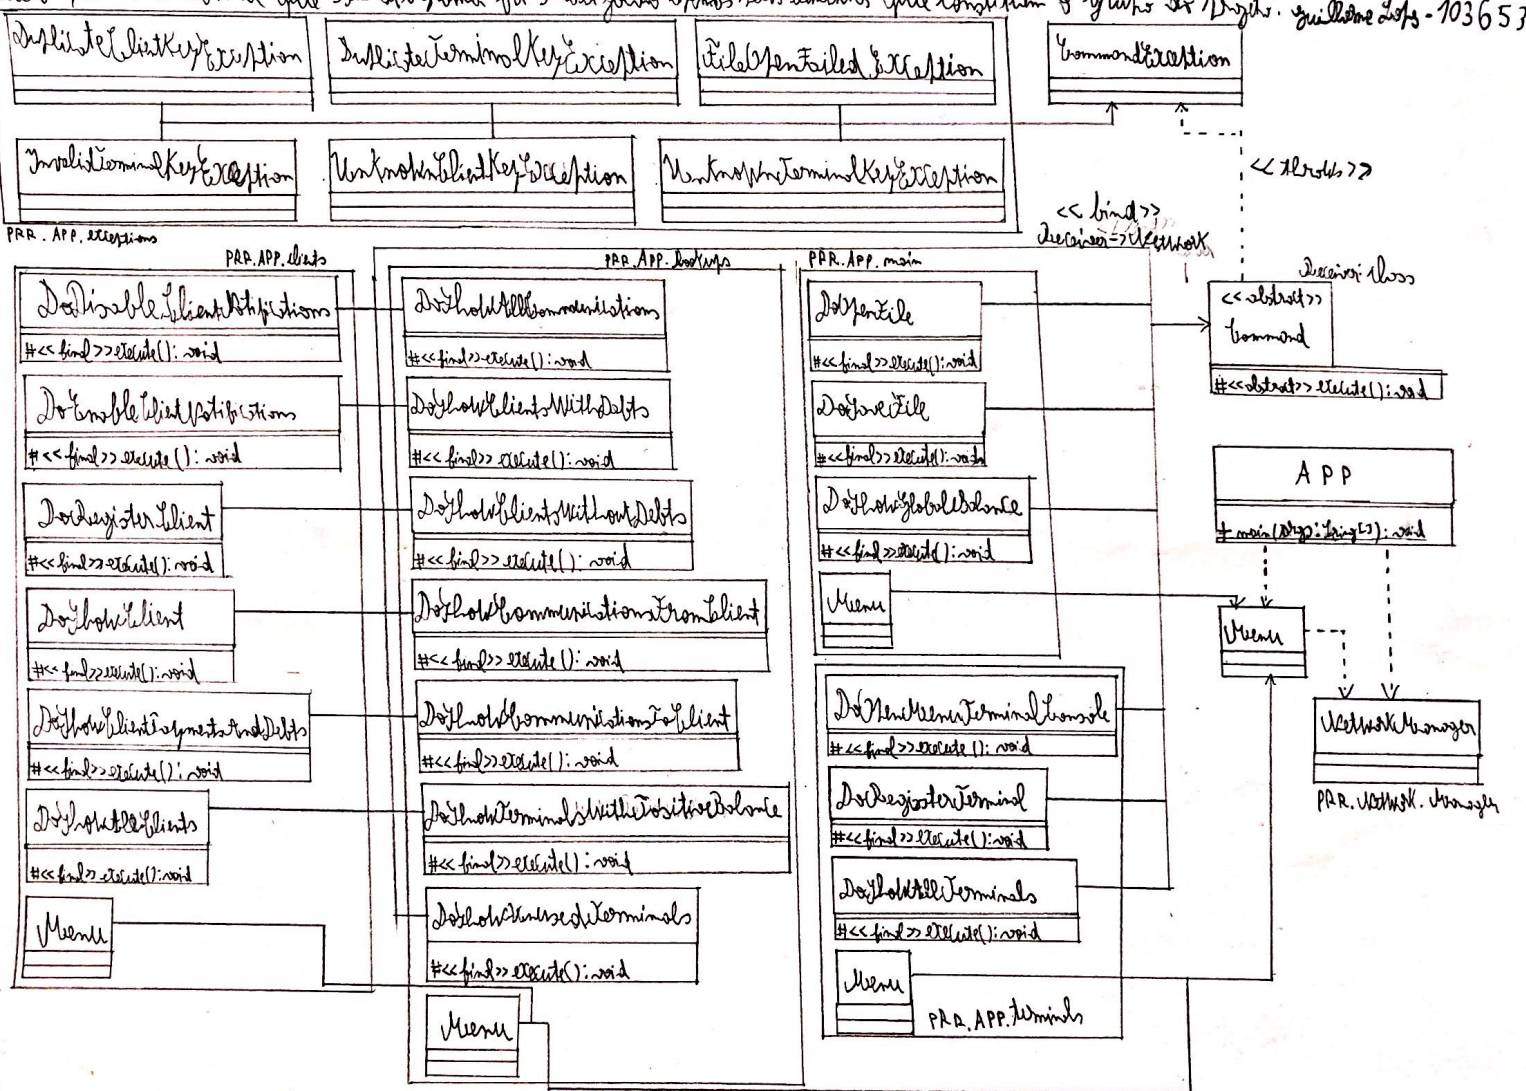 que constituem o grupo do projeto. Guilherme Lopes - 103653
DuplicateClientKeyException
DuplicateTerminalKeyException
FileOpenFailedException
CommandException
InvalidTerminalKeyException
UnknownClientKeyException
UnknownTerminalKeyException
<<throws>>
PRR.APP.exceptions
<<bind>>
Receiver->Network
PRR.APP.clients
DoDisableClientNotifications
#<<final>>execute(): void
DoEnableClientNotifications
#<<final>>execute(): void
DoRegisterClient
#<<final>>execute(): void
DoShowClient
#<<final>>execute(): void
DoShowClientPaymentsAndDebts
#<<final>>execute(): void
DoShowAllClients
#<<final>>execute(): void
Menu
PRR.APP.lookups
DoShowAllCommunications
#<<final>>execute(): void
DoShowClientsWithDebts
#<<final>>execute(): void
DoShowClientsWithoutDebts
#<<final>>execute(): void
DoShowCommunicationsFromClient
#<<final>>execute(): void
DoShowCommunicationsToClient
#<<final>>execute(): void
DoShowTerminalsWithPositiveBalance
#<<final>>execute(): void
DoShowUnusedTerminals
#<<final>>execute(): void
Menu
PRR.APP.main
DoOpenFile
#<<final>>execute(): void
DoSaveFile
#<<final>>execute(): void
DoShowGlobalBalance
#<<final>>execute(): void
Menu
DoOpenMenuTerminalConsole
#<<final>>execute(): void
DoRegisterTerminal
#<<final>>execute(): void
DoShowAllTerminals
#<<final>>execute(): void
Menu
PRR.APP.terminals
Receiver: class
<<abstract>>
Command
#<<abstract>>execute(): void
APP
+ main(args: String[]): void
Menu
NetworkManager
PRR.Network.Manager